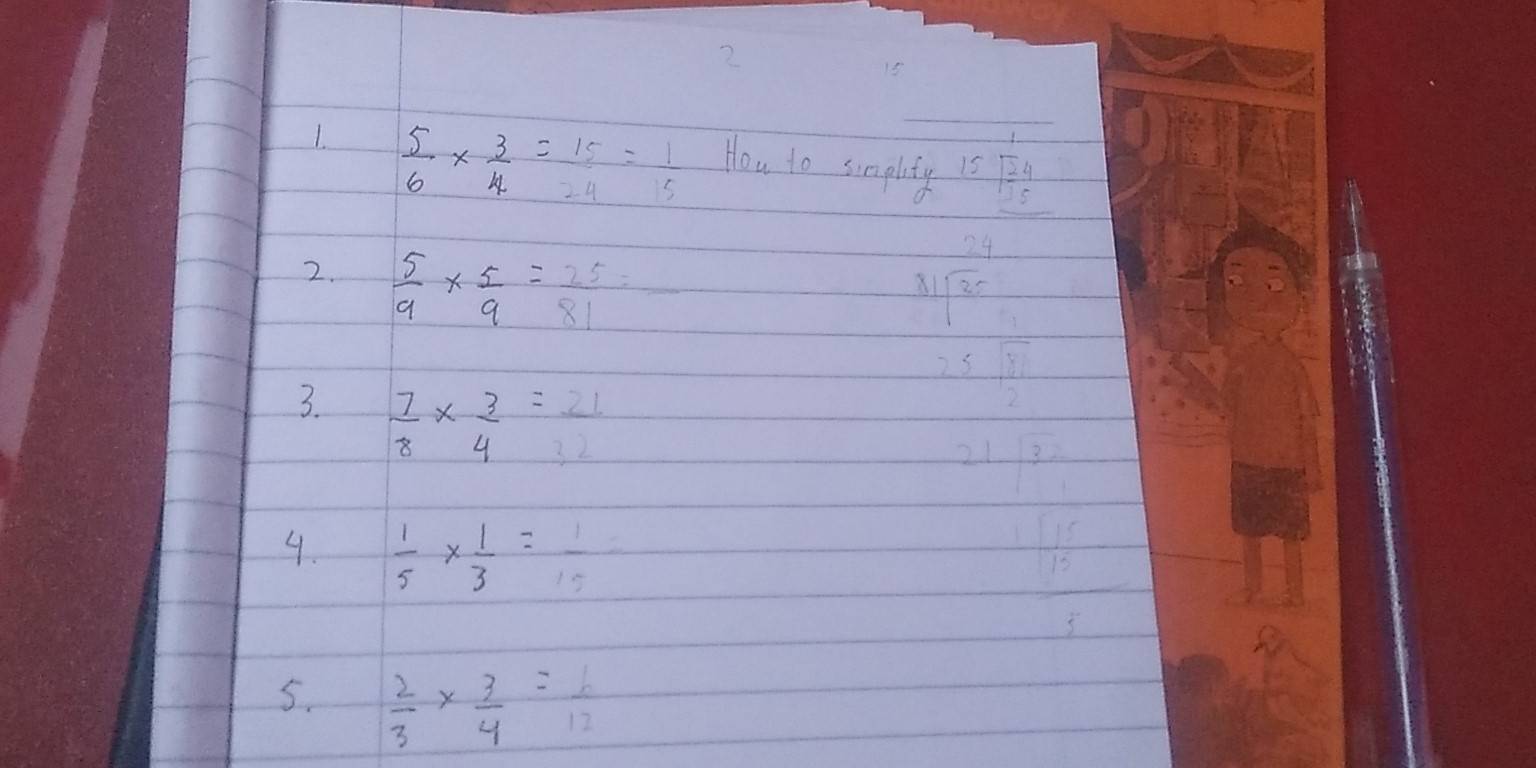 2 15
1. 5/6 × 3/4 = 15/24 = 1/15 How to simplify 15 24 1 15
24
2. 5/9 × 5/9 = 25/81 = 81 25
25 81
2
3. 7/8 × 3/4 = 21/32 21 32
1
4. 1/5 × 1/3 = 1/15 = 1 15
15
5
5. 2/3 × 3/4 = 6/12